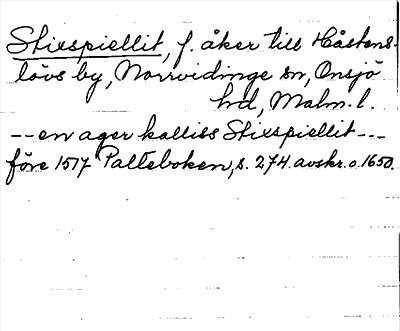 Stixspiellit, f. åker till Håstens-
lövs by, Norrvidinge sn, Onsjö
hd, Malm. l.
-- en ager kalliss Stixspiellit ---
före 1517 Palteboken, s. 274. avskr. o. 1650.